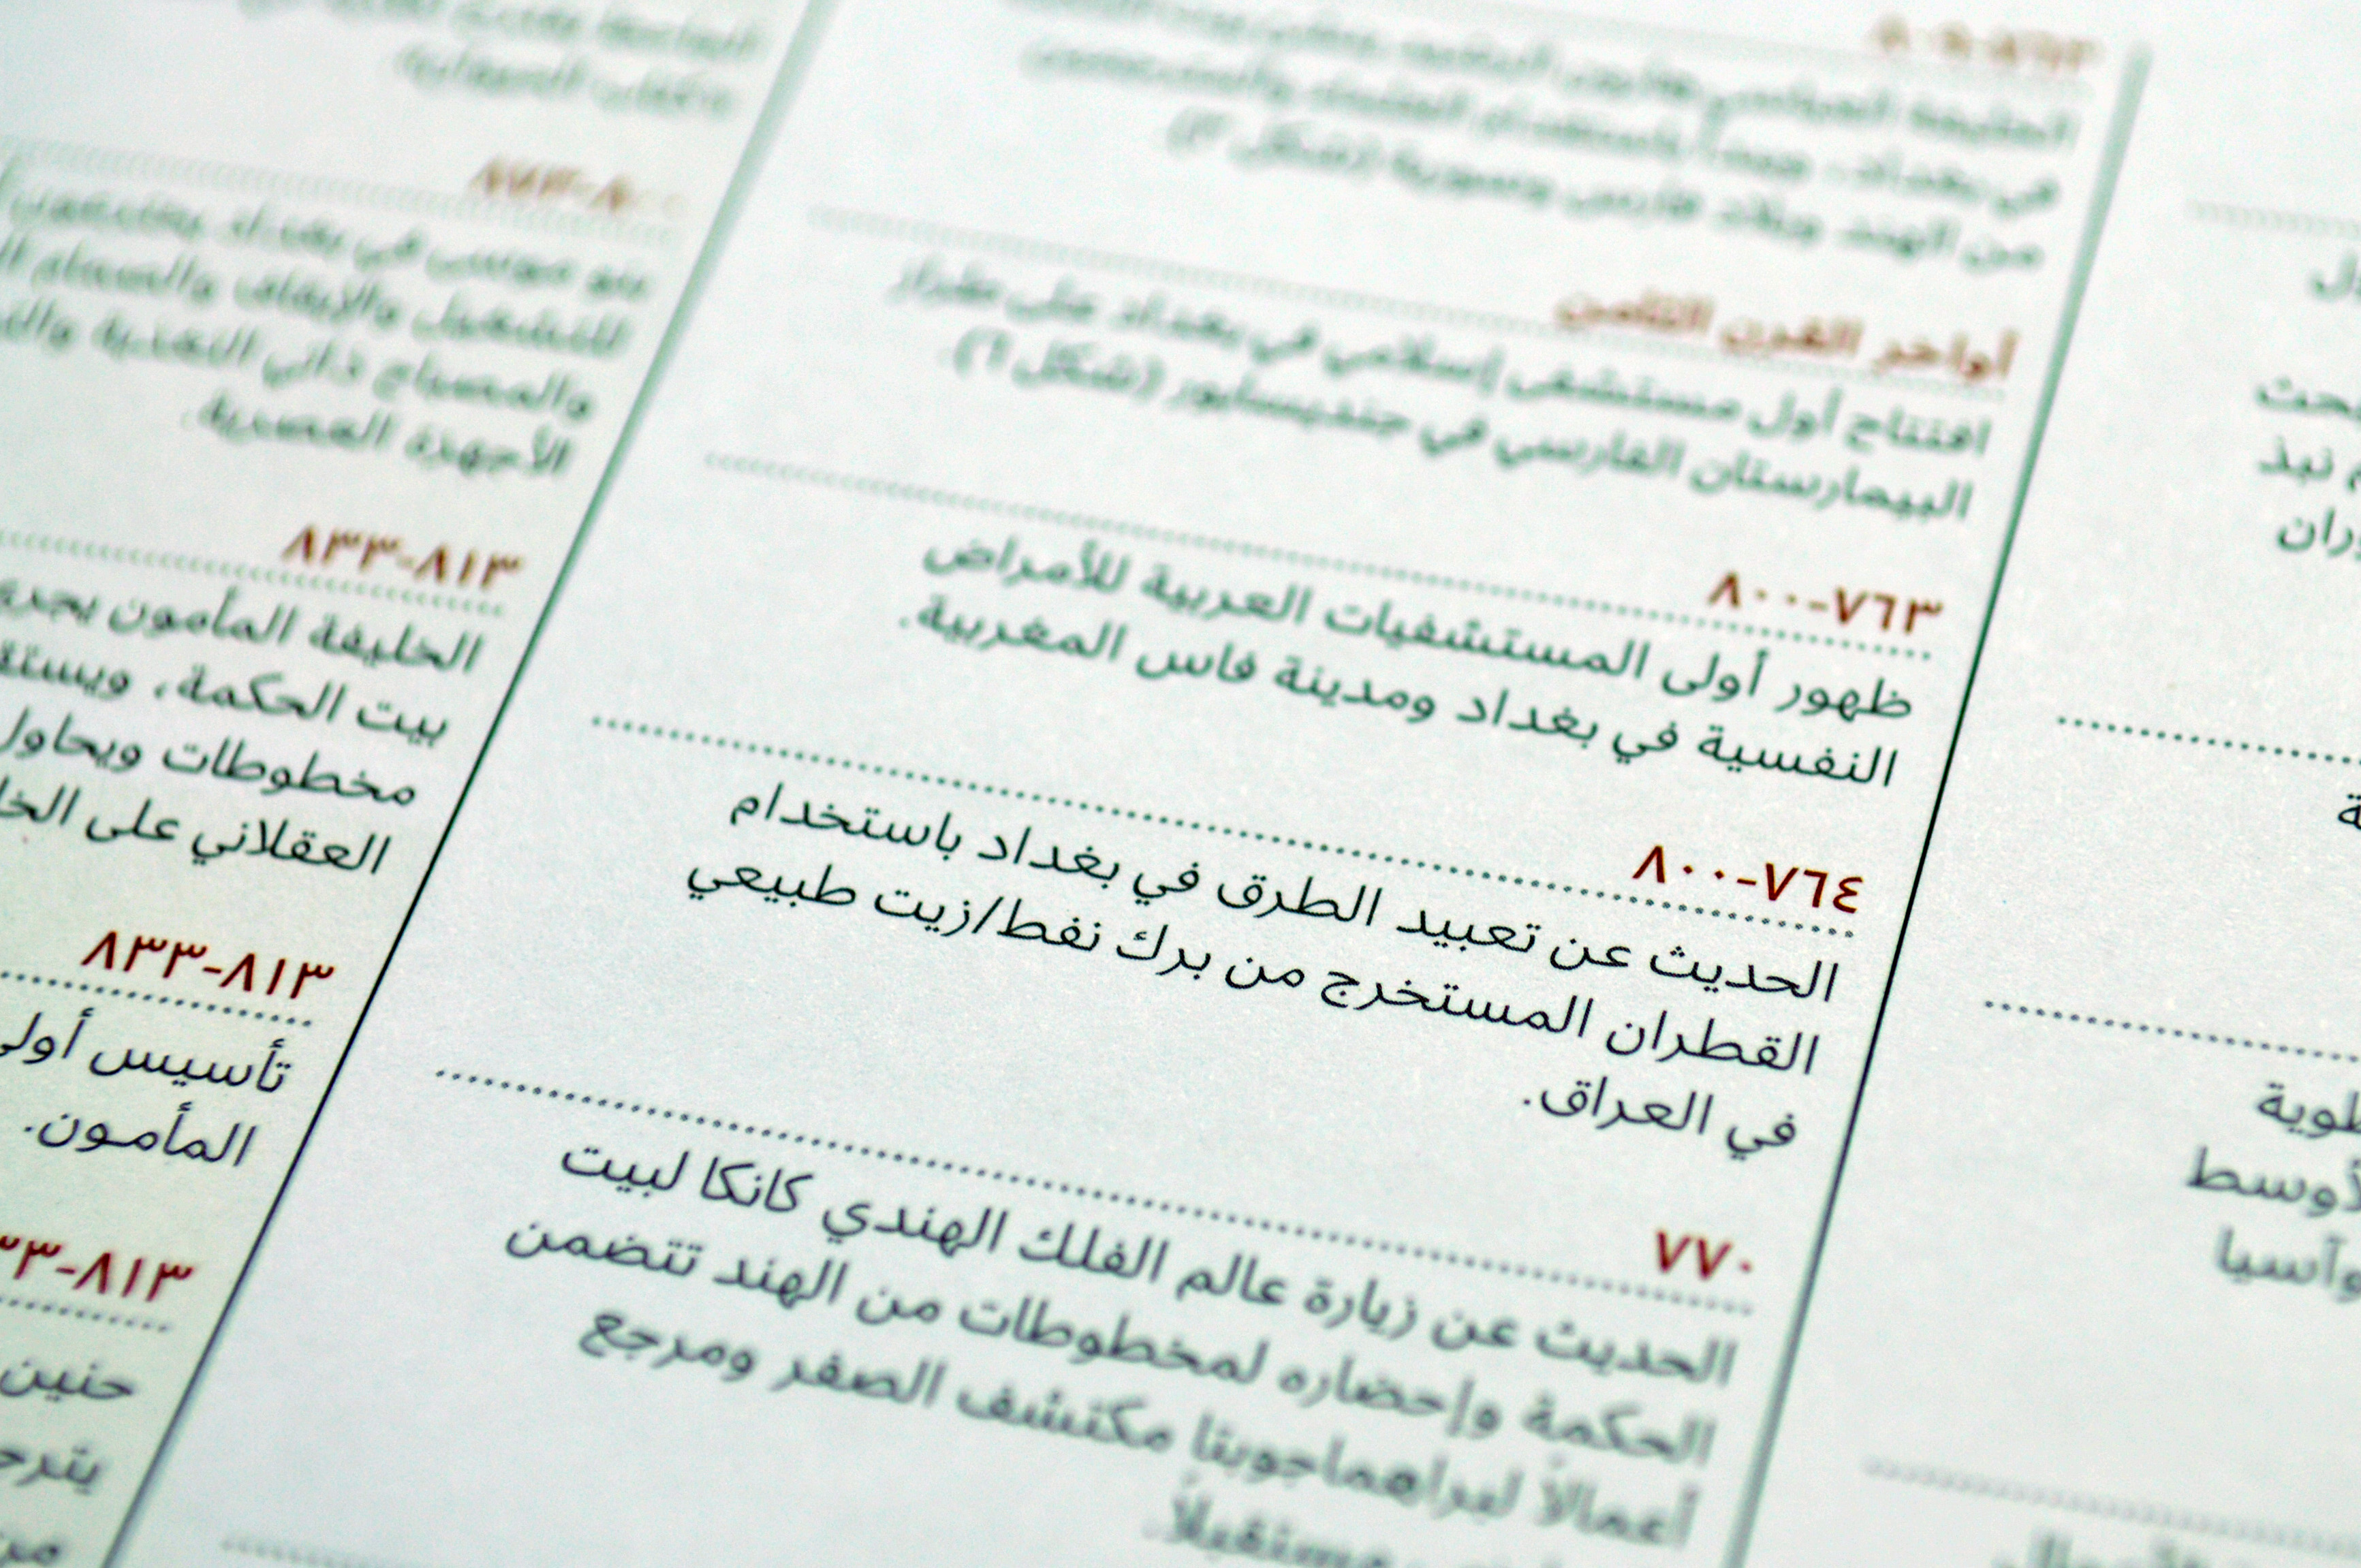 ال
حث
نبذ
وران
ة
طوية
لأوسط
وآسيا
في بغداد
من الهند وبلاد فارس وسورية (شكل ٢)
أواخر القرن الثامن
افتتاح أول مستشفى إسلامي في بغداد على طراز
البيمارستان الفارسي في جنديسابور (شكل ٦).
٧٦٣-٨٠٠
ظهور أولى المستشفيات العربية للأمراض
النفسية في بغداد ومدينة فاس المغربية.
٧٦٤-٨٠٠
الحديث عن تعبيد الطرق في بغداد باستخدام
القطران المستخرج من برك نفط/زيت طبيعي
في العراق.
٧٧٠
الحديث عن زيارة عالم الفلك الهندي كانكا لبيت
الحكمة وإحضاره لمخطوطات من الهند تتضمن
أعمالاً لبراهماجوبتا مكتشف الصفر ومرجع
مستقبلاً.
بنو موسى في بغداد
للتشغيل والإيقاف والصمام
والمصباح ذاتي التغذية
الأجهزة العصرية.
٨١٣-٨٣٣
الخليفة المأمون يجري
بيت الحكمة، ويستق
مخطوطات ويحاول
العقلاني على الخ
٨١٣-٨٣٣
تأسيس أولى
المأمون.
٨١٣-٣٣
حنين
يترج
من